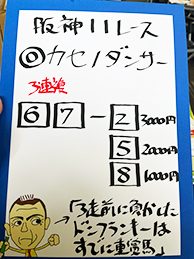 阪神11レース
◎カセノダンサー
3連単
6 7 - 2 3000円
5 2000円
8 1000円
←「3走前に負かした
ドンフランキーは
すでに重賞馬」